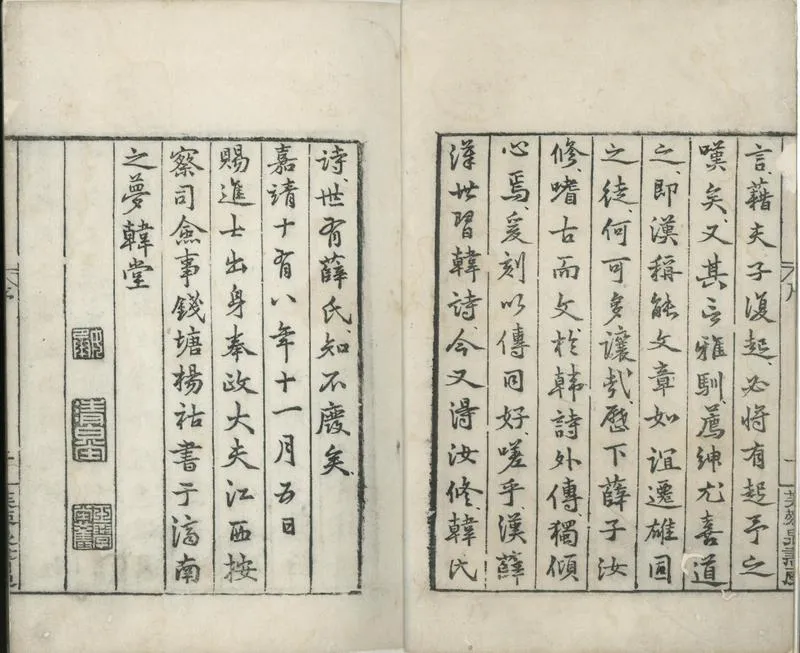 言藉夫子復起必將有起予之
嘆矣又其言雅馴薦紳尤喜道
之即漢稱能文章如誼遷雄固
之徒何可多讓哉歷下薛子汝
修嗜古而文於韓詩外傳獨傾
心焉爰刻以傳同好嗟乎漢薛
漢世習韓詩今又得汝修韓氏
詩世有薛氏知不廢矣
嘉靖十有八年十一月五日
賜進士出身奉政大夫江西按
察司僉事錢塘楊祜書于濟南
之夢韓堂